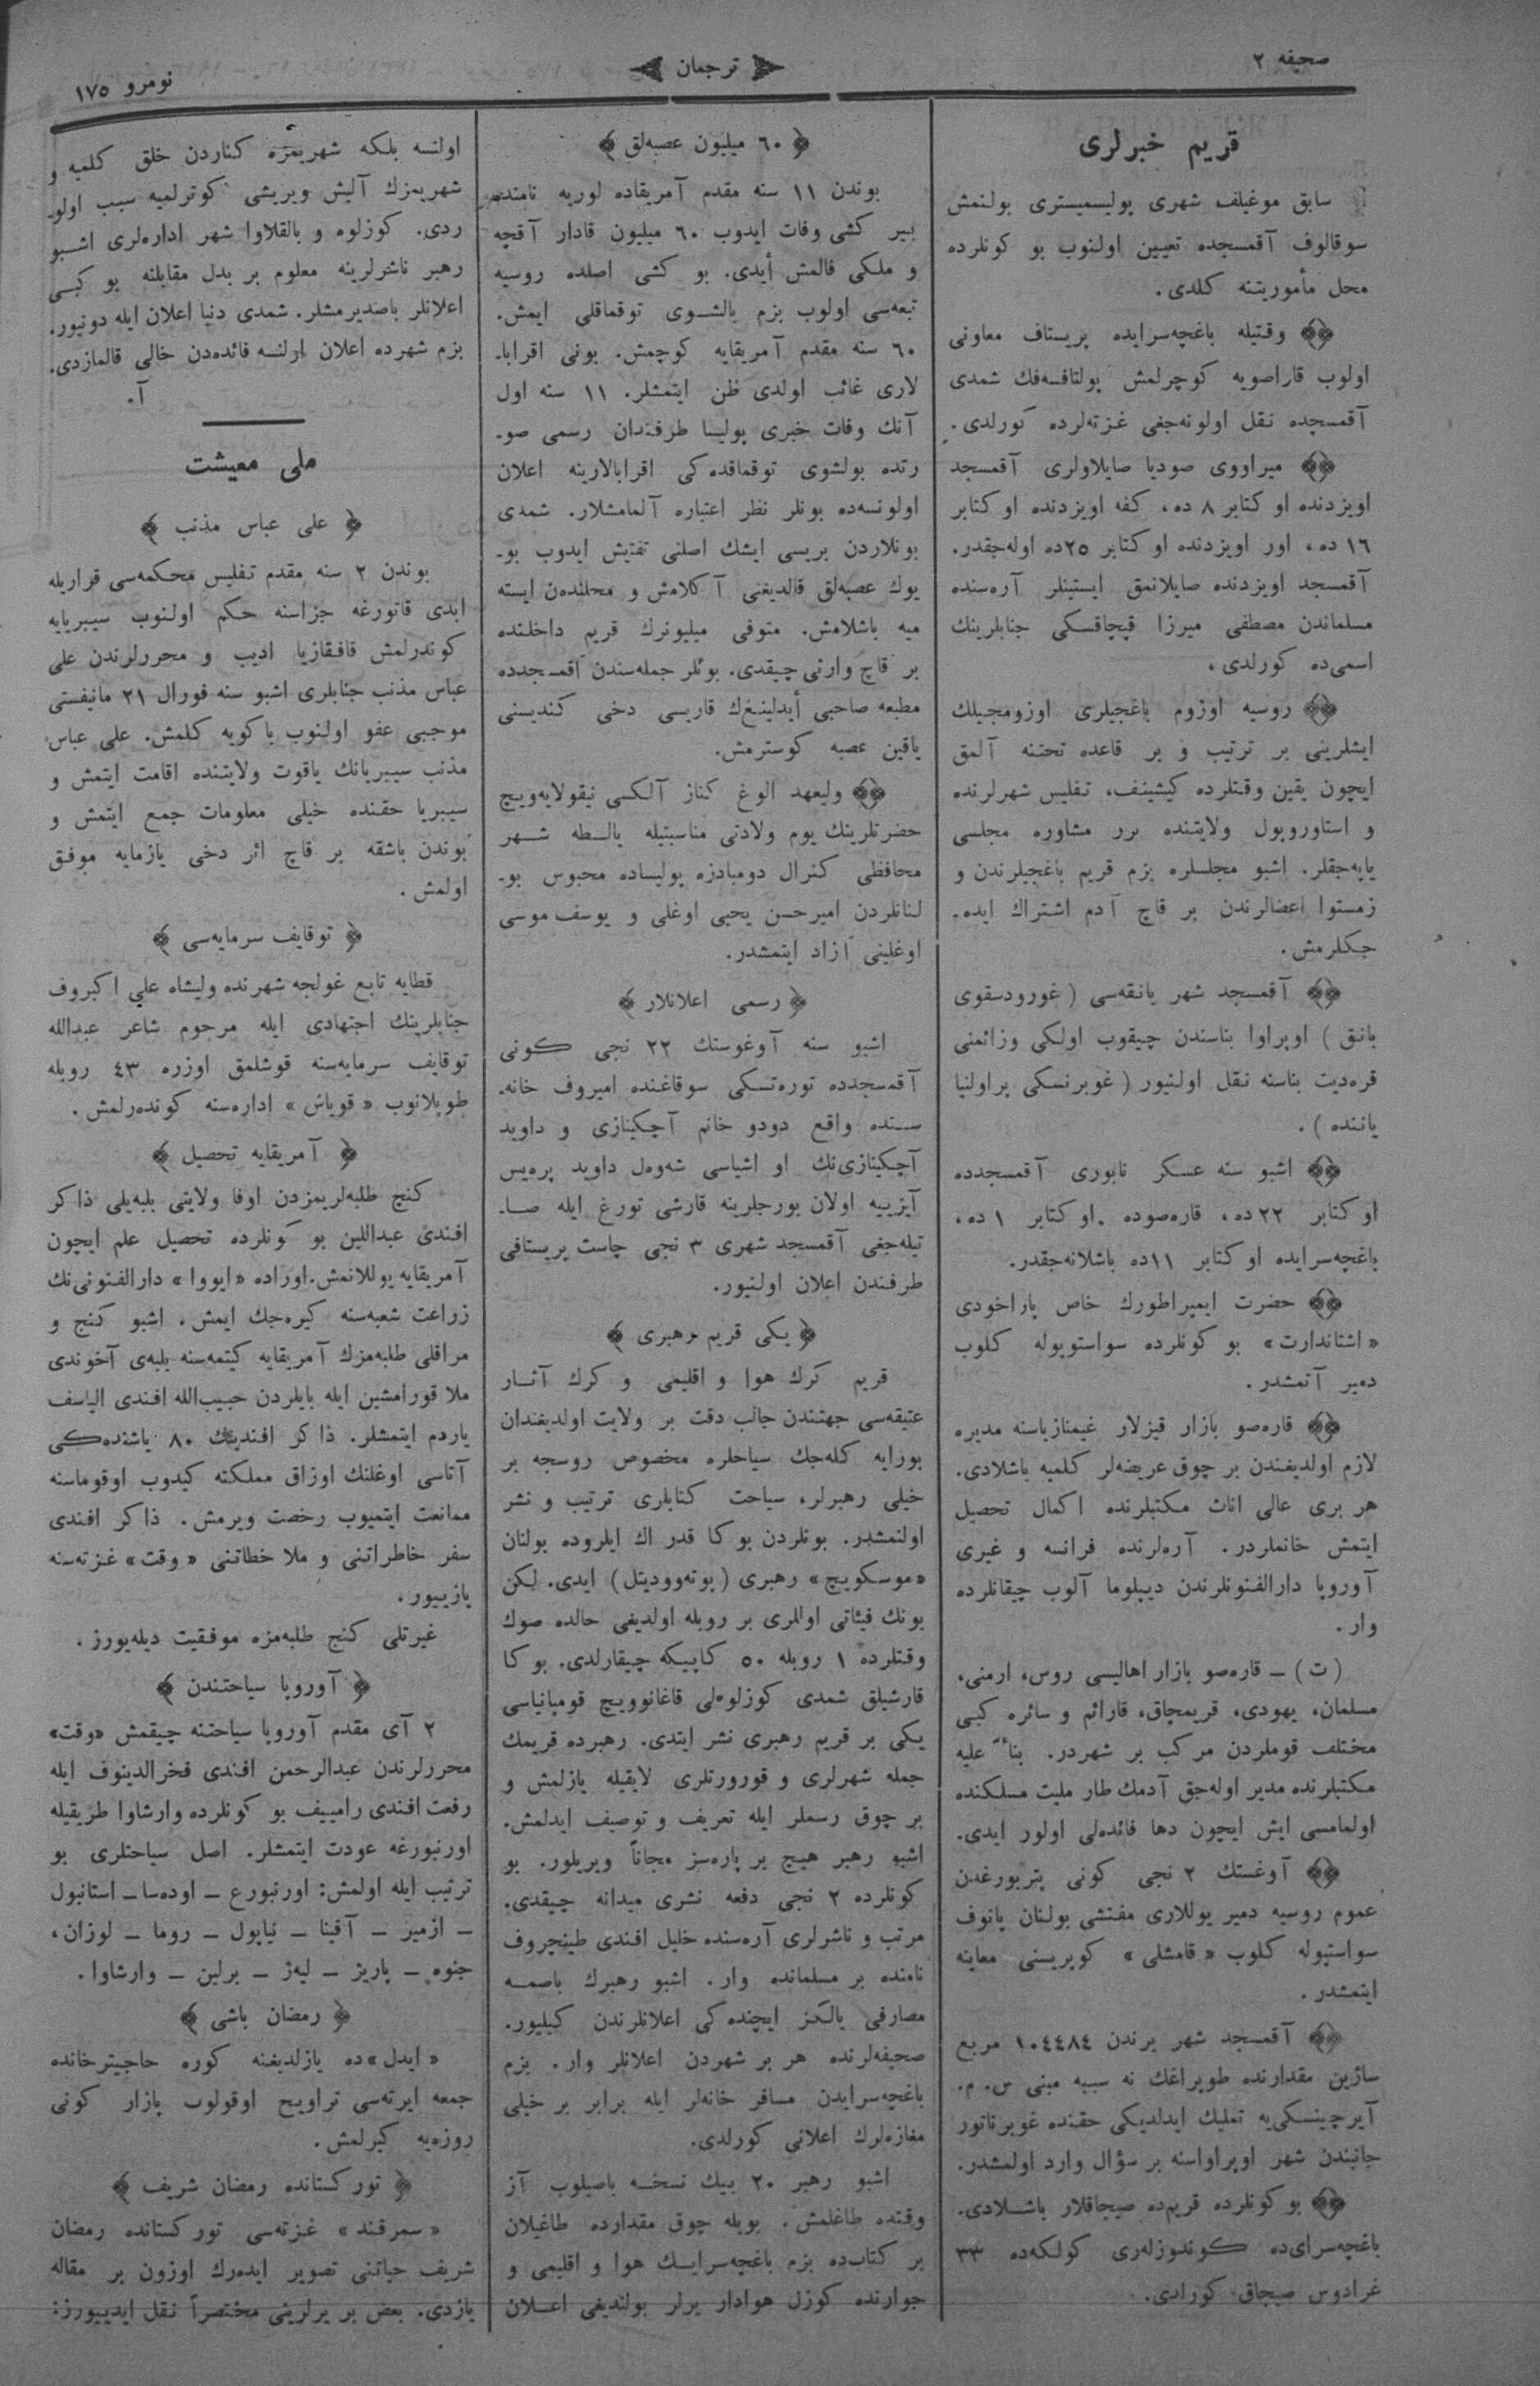 صحیفه ٢
ترجمان
نومرو ١٧٥
قریم خبرلری
سابق موغیلف شهری پولیسمیستری بولنمش
سوقالوف آقمسجده تعیین اولنوب بو كونلرده
محل مأموریتنه كلدی.
وقتیله باغچه‌سرایده پریستاف معاونی
اولوب قاراصویه كوچرلمش پولتافسه‌فك شمدی
آقمسجده نقل اولونه‌جغی غزته‌لرده كورلدی.
میراووی صودیا صایلاولری آقمسجد
اویزدنده اوكتابر ٨ ده، كفه اویزدنده اوكتابر
١٦ ده، اور اویزدنده اوكتابر ٢٥ده اوله‌جقدر.
آقمسجد اویزدنده صایلانمق ایستینلر آره‌سنده
مسلماندن مصطفی میرزا قپچاقسكی جنابلرینك
اسمی‌ده كورلدی.
روسیه اوزوم باغجیلری اوزومجیلك
ایشلرینی بر ترتیب و بر قاعده تحتنه آلمق
ایچون یقین وقتلرده كیشینف، تفلیس شهرلرنده
و استاوروپول ولایتنده برر مشاوره مجلسی
یاپه‌جقلر. اشبو مجلسلره بزم قریم باغجیلرندن و
زمستوا اعضالرندن بر قاچ آدم اشتراك ایده‌ـ
جكلرمش.
آقمسجد شهر بانقه‌سی (غورودسقوی
بانق) اوپراوا بناسندن چیقوب اولكی وزائمنی
قره‌دیت بناسنه نقل اولنیور (غوبرنسكی پراولنیا
یاننده).
اشبو سنه عسكر نابوری آقمسجدده
اوكتابر ٢٢ ده، قاره‌صوده اوكتابر ١ ده،
باغچه‌سرایده اوكتابر ١١ده باشلانه‌جقدر.
حضرت ایمپراطورك خاص پاراخودی
«اشتاندارت» بو كونلرده سواستوپوله كلوب
دمیر آتمشدر.
قاره‌صو بازار قیزلار غیمنازیاسنه مدیره
لازم اولدیغندن بر چوق عریضه‌لر كلمیه باشلادی.
هر بری عالی اناث مكتبلرنده اكمال تحصیل
ایتمش خانملردر. آره‌لرنده فرانسه و غیری
آوروپا دارالفنونلرندن دیپلوما آلوب چیقانلرده
وار.
(ت) ـ قاره‌صو بازار اهالیسی روس، ارمنی،
مسلمان، یهودی، قریمچاق، قارائم و سائره كبی
مختلف قوملردن مركب بر شهردر. بناءً علیه
مكتبلرنده مدیر اوله‌جق آدمك طار ملیت مسلكنده
اولمامسی ایش ایچون دها فائده‌لی اولور ایدی.
آوغستك ٢ نجی كونی پتربورغدن
عموم روسیه دمیر یوللاری مفتشی بولنان یانوف
سواستپوله كلوب «قامشلی» كوپریسنی معاینه
ایتمشدر.
آقمسجد شهر یرندن ١٠٤٤٨٤ مربع
ساژین مقدارنده طوپراغك نه سببه مبنی س. م.
آیرچینسكی‌یه تملیك ایدلدیكی حقنده غوبرناتور
جانبندن شهر اوپراواسنه بر سؤال وارد اولمشدر.
بو كونلرده قریم‌ده صیجاقلار باشلادی.
باغچه‌سرای‌ده كوندوزلری كولكه‌ده ٣٣
غرادوس صیجاق كورلدی.
٦٠ میلیون عصبه‌لق
بوندن ١١ سنه مقدم آمریقاده لوریه نامنده
بیر كشی وفات ایدوب ٦٠ میلیون قادار آقچه
و ملكی قالمش أیدی. بو كشی اصلده روسیه
تبعه‌سی اولوب بزم بالشوی توقماقلی ایمش.
٦٠ سنه مقدم آمریقایه كوچمش. بونی اقرباـ
لاری غائب اولدی ظن ایتمشلر. ١١ سنه اول
آنك وفات خبری پولیسا طرفندان رسمی صوـ
رتده بولشوی توقماقده‌كی اقربالارینه اعلان
اولونسه‌ده بونلر نظر اعتباره آلمامشلار. شمدی
بونلاردن بریسی ایشك اصلنی تفتیش ایدوب بوـ
یوك عصبه‌لق قالدیغنی آكلامش و محلندن ایسته
میه باشلامش. متوفی میلیونرك قریم داخلنده
بر قاچ وارثی چیقدی. بونلر جمله‌سندن آقمسجدده
مطبعه صاحبی أیدلینغ‌ك قاریسی دخی كندیسنی
یاقین عصبه كوسترمش.
ولیعهد الوغ كناز آلكسی نیقولایه‌ویچ
حضرتلرینك یوم ولادتی مناسبتیله یالطه شهر
محافظی كنرال دومبادزه پولیساده محبوس بوـ
لنانلردن امیرحسن یحیی اوغلی و یوسف موسی
اوغلینی آزاد ایتمشدر.
رسمی اعلانلار
اشبو سنه آوغوستك ٢٢ نجی كونی
آقمسجدده توره‌تسكی سوقاغنده امیروف خانه‌ـ
سنده واقع دودو خانم آچكینازی و داوید
آچكینازی‌نك او اشیاسی شه‌وه‌ل داوید پره‌یس
آیزییه اولان بورجلرینه قارشی تورغ ایله صاـ
تیله‌جغی آقمسجد شهری ٣ نجی چاست پریستافی
طرفندن اعلان اولنیور.
یكی قریم رهبری
قریم كرك هوا و اقلیمی و كرك آثار
عتیقه‌سی جهتندن جالب دقت بر ولایت اولدیغندان
بورایه كله‌جك سیاحلره مخصوص روسجه بر
خیلی رهبرلر، سیاحت كتابلری ترتیب و نشر
اولنمشدر. بونلردن بوكا قدر اك ایلروده بولنان
«موسكویچ» رهبری (پوته‌وودیتل) ایدی. لكن
بونك فیئاتی اوللری بر روبله اولدیغی حالده صوك
وقتلرده ١ روبله ٥٠ كاپیكه چیقارلدی. بوكا
قارشیلق شمدی كوزلوه‌لی قاغانوویچ قومپانیاسی
یكی بر قریم رهبری نشر ایتدی. رهبرده قریمك
جمله شهرلری و قورورتلری لایقیله یازلمش و
بر چوق رسملر ایله تعریف و توصیف ایدلمش.
اشبو رهبر هیچ بر پاره‌سز مجاناً ویریلور. بو
كونلرده ٢ نجی دفعه نشری میدانه چیقدی.
مرتب و ناشرلری آره‌سنده خلیل افندی طینچروف
نامنده بر مسلمانده وار. اشبو رهبرك باصمه
مصارفی یالكز ایچنده‌كی اعلانلرندن كیلیور.
صحیفه‌لرنده هر بر شهردن اعلانلر وار. بزم
باغچه‌سرایدن مسافر خانه‌لر ایله برابر بر خیلی
مغازه‌لرك اعلانی كورلدی.
اشبو رهبر ٢٠ بیك نسخه باصیلوب آز
وقتده طاغلمش. بویله چوق مقدارده طاغیلان
بر كتاب‌ده بزم باغچه‌سرایك هوا و اقلیمی و
جوارنده كوزل هوادار یرلر بولندیغی اعلان
اولنسه بلكه شهریمزه كناردن خلق كلمیه و
شهریمزك آلیش ویریشی كوترلمیه سبب اولوـ
ردی. كوزلوه و بالقلاوا شهر اداره‌لری اشبو
رهبر ناشرلرینه معلوم بر بدل مقابلنه بو كبی
اعلانلر باصدیرمشلر. شمدی دنیا اعلان ایله دونیور.
بزم شهرده اعلان اولنسه فائده‌دن خالی قالمازدی.
آ.
ملی معیشت
علی عباس مذنب
بوندن ٢ سنه مقدم تفلیس محكمه‌سی قراریله
ابدی قاتورغه جزاسنه حكم اولنوب سیبریایه
كوندرلمش قافقازیا ادیب و محررلرندن علی
عباس مذنب جنابلری اشبو سنه فورال ٢١ مانیفستی
موجبی عفو اولنوب باكویه كلمش. علی عباس
مذنب سیبریانك یاقوت ولایتنده اقامت ایتمش و
سیبریا حقنده خیلی معلومات جمع ایتمش و
بوندن باشقه بر قاچ اثر دخی یازمایه موفق
اولمش.
توقایف سرمایه‌سی
قطایه تابع غولجه شهرنده ولیشاه علی اكبروف
جنابلرینك اجتهادی ایله مرحوم شاعر عبدالله
توقایف سرمایه‌سنه قوشلمق اوزره ٤٣ روبله
طوپلانوب «قویاش» اداره‌سنه كونده‌رلمش.
آمریقایه تحصیل
كنج طلبه‌لریمزدن اوفا ولایتی بلبه‌یلی ذاكر
افندی عبداللین بو كونلرده تحصیل علم ایچون
آمریقایه یوللانمش. اوراده «ایووا» دارالفنونی‌نك
زراعت شعبه‌سنه كیره‌جك ایمش. اشبو كنج و
مراقلی طلبه‌مزك آمریقایه كیتمه‌سنه بلبه‌ی آخوندی
ملا قورامشین ایله بایلردن حبیب‌الله افندی الیاسف
یاردم ایتمشلر. ذاكر افندینك ٨٠ یاشنده‌كی
آتاسی اوغلنك اوزاق مملكته كیدوب اوقوماسنه
ممانعت ایتمیوب رخصت ویرمش. ذاكر افندی
سفر خاطراتنی و ملا خطاتنی «وقت» غزته‌سنه
یازییور.
غیرتلی كنج طلبه‌مزه موفقیت دیله‌یورز.
آوروپا سیاحتندن
٢ آی مقدم آوروپا سیاحتنه چیقمش «وقت»
محررلرندن عبدالرحمن افندی فخرالدینوف ایله
رفعت افندی رامییف بو كونلرده وارشاوا طریقیله
اورنبورغه عودت ایتمشلر. اصل سیاحتلری بو
ترتیب ایله اولمش: اورنبورغ ـ اوده‌سا ـ استانبول
ـ ازمیر ـ آفینا ـ نیاپول ـ روما ـ لوزان،
جنوه ـ پاریز ـ لیه‌ژ ـ برلین ـ وارشاوا.
رمضان باشی
«ایدل»ده یازلدیغنه كوره حاجیترخانده
جمعه ایرته‌سی تراویح اوقولوب بازار كونی
روزه‌یه كیرلمش.
توركستانده رمضان شریف
«سمرقند» غزته‌سی توركستانده رمضان
شریف حیاتنی تصویر ایده‌رك اوزون بر مقاله
یازدی. بعض بر یرلرینی مختصراً نقل ایدییورز: